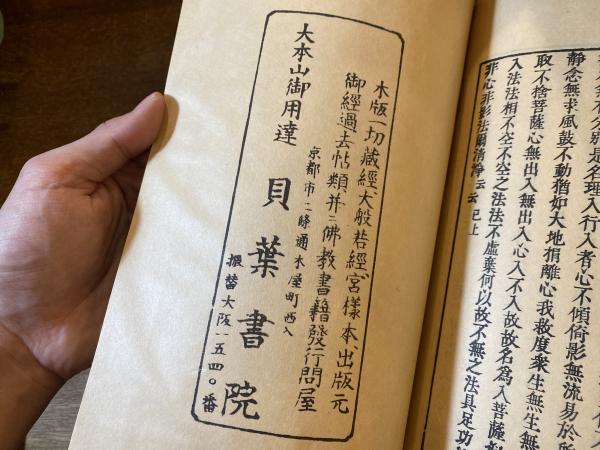 分別是名理入行入者心不傾倚影無流易於所
靜念無求風鼓不動猶如大地捐離心我救度衆生無生無
取不捨菩薩心無出入無出入心入不入故故名爲入菩薩
入法法相不空不空之法法不虛棄何以故不無之法具足功
非心非影法爾清淨云云 已上
木版一切藏經大般若經宮樣本出版元
御經過去帖類并ニ佛教書籍發行問屋
京都市二條通木屋町西入
大本山御用達
貝葉書院
振替大阪一五四〇番